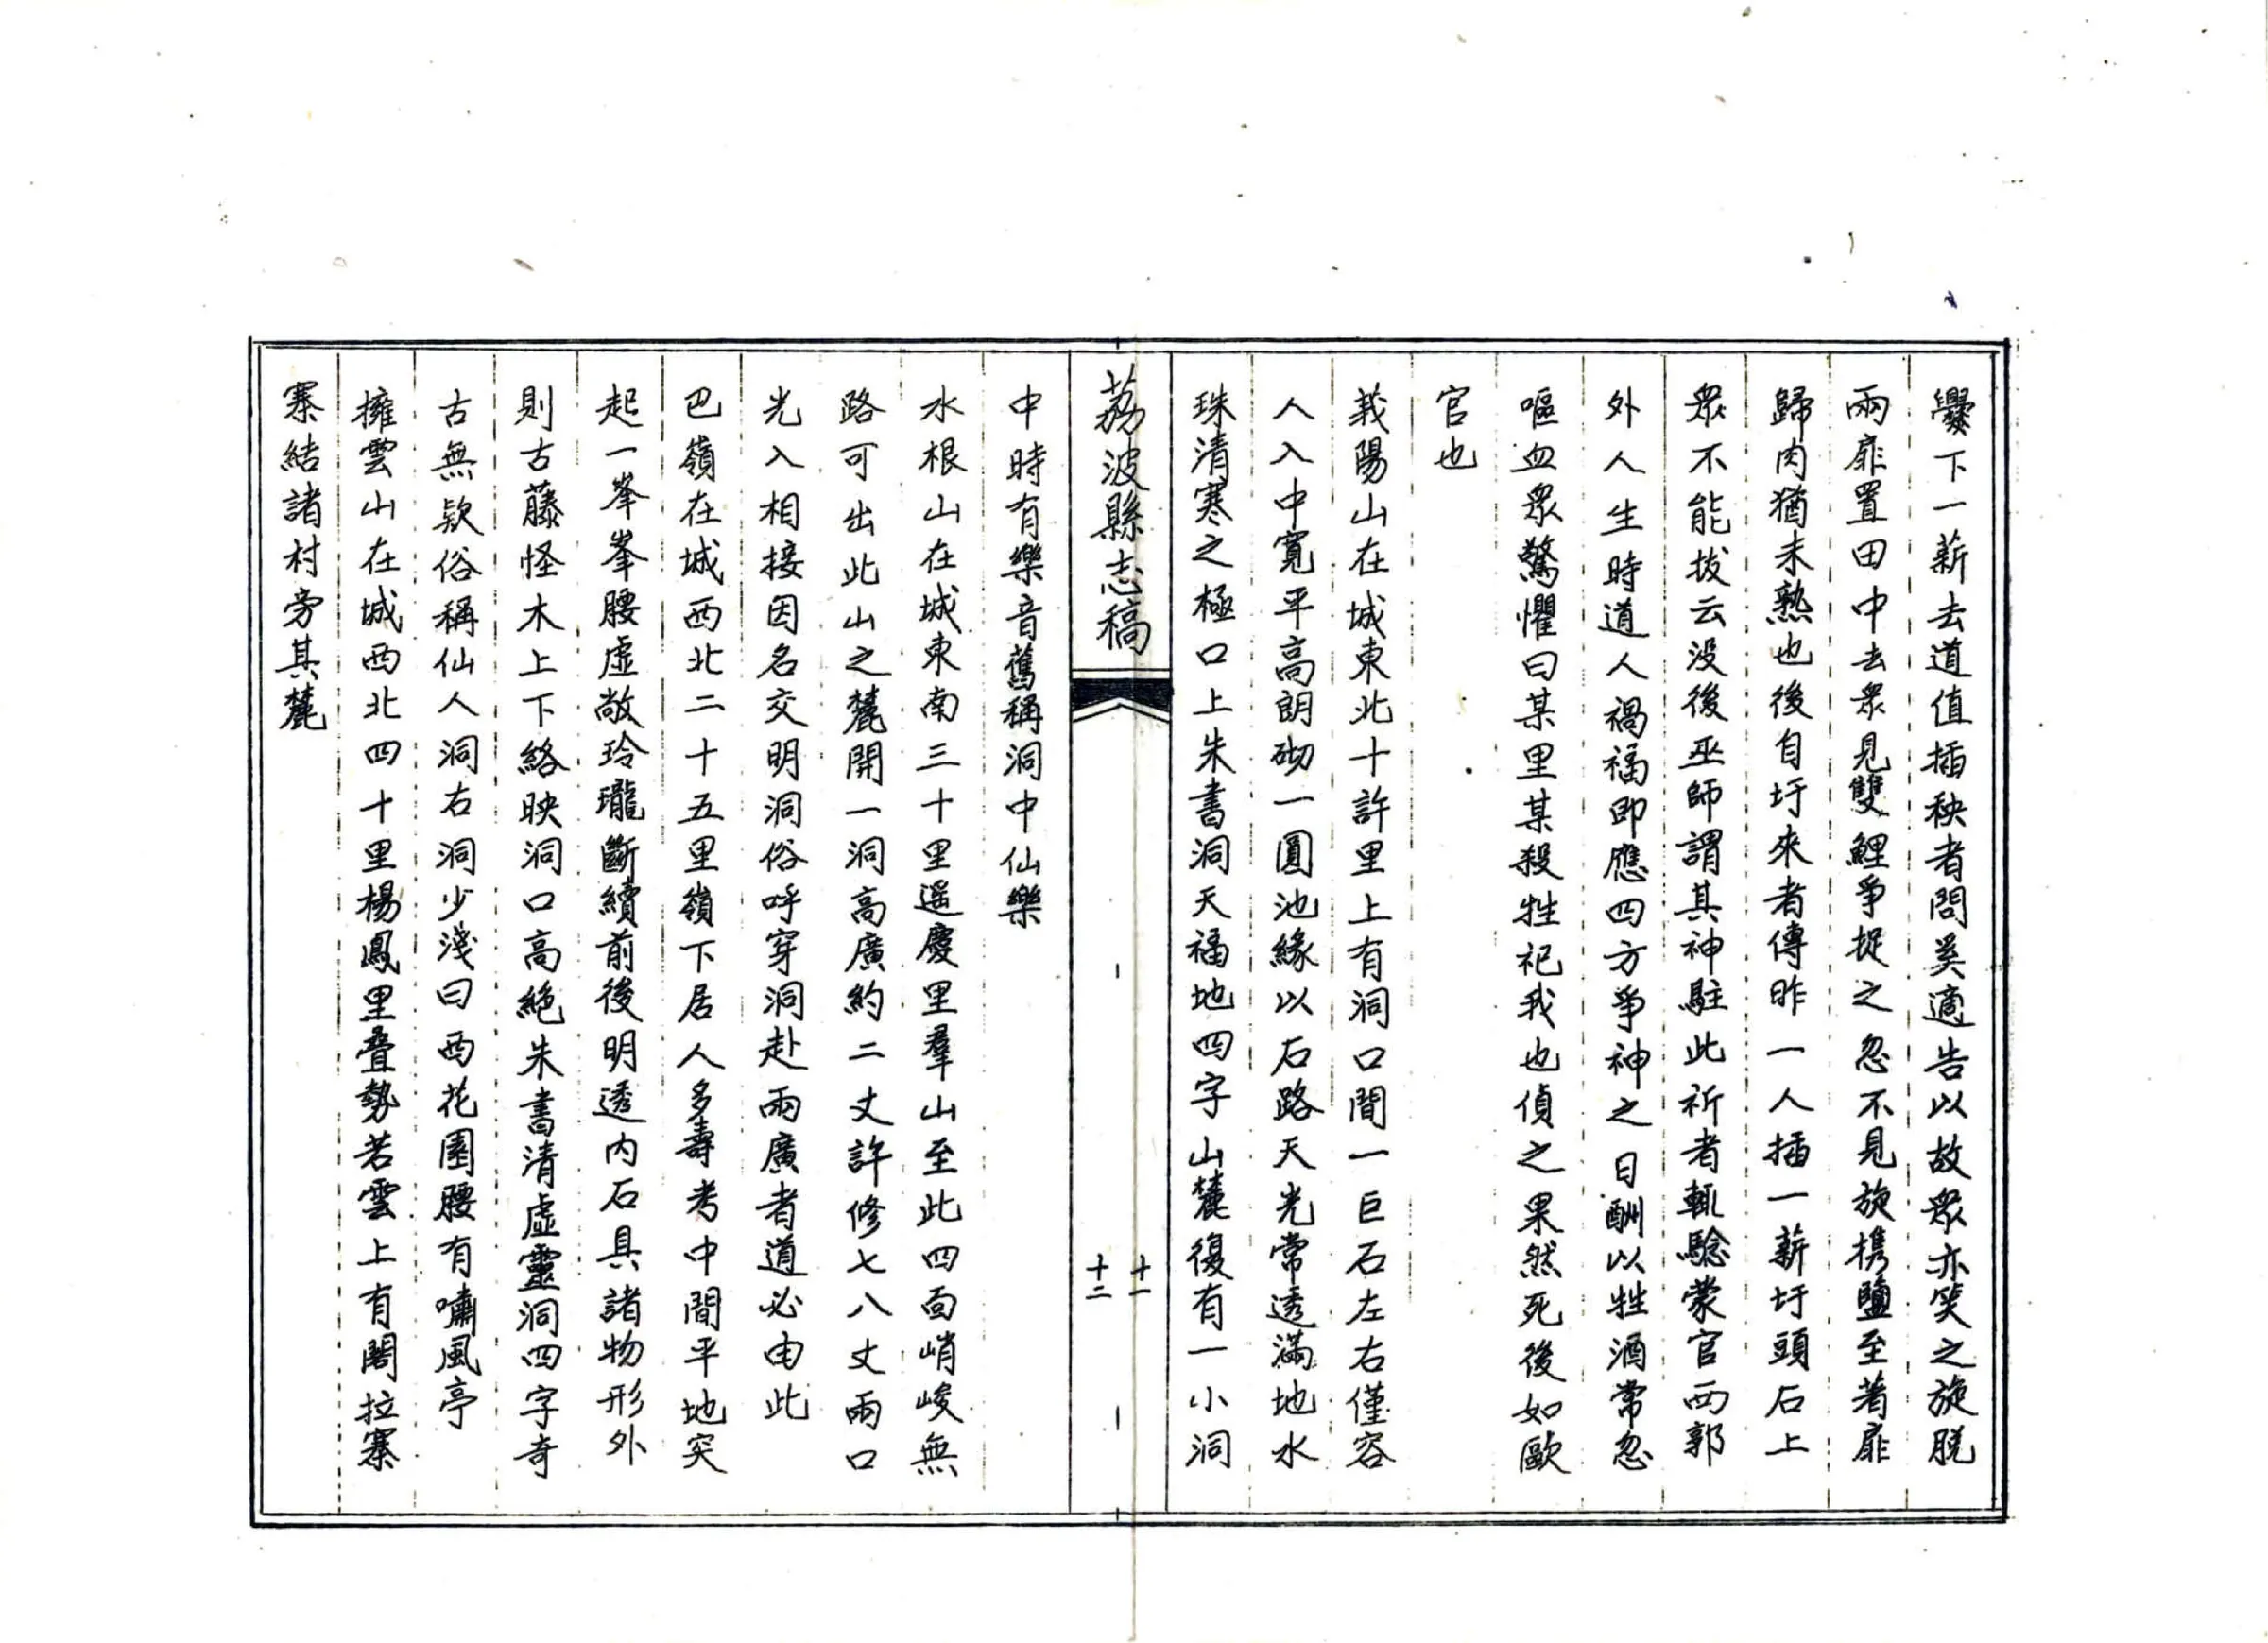 爨下一薪去道值插秧者問奚適告以故衆亦笑之旋脱
兩扉置田中去衆見雙鯉爭捉之忽不見旋攜鹽至著扉
歸肉猶未熟也後自圩來者傳昨一人插一薪圩頭石上
衆不能拔云没後巫師謂其神駐此祈者輒驗蒙官西郭
外人生時道人禍福即應四方爭神之日酬以牲酒常忽
嘔血衆驚懼曰某里某殺牲祀我也偵之果然死後如歐
官也
莪陽山在城東北十許里上有洞口間一巨石左右僅容
人入中寬平高朗砌一圓池緣以石路天光常透滿地水
珠清寒之極口上朱書洞天福地四字山麓復有一小洞
荔波縣志稿
十一
十二
中時有樂音舊稱洞中仙樂
水根山在城東南三十里遥慶里羣山至此四面峭峻無
路可出此山之麓開一洞高廣約二丈許修七八丈兩口
光入相接因名交明洞俗呼穿洞赴兩廣者道必由此
巴嶺在城西北二十五里嶺下居人多壽考中間平地突
起一峯峯腰虚敞玲瓏斷續前後明透内石具諸物形外
則古藤怪木上下絡映洞口高絶朱書清虚靈洞四字奇
古無欵俗稱仙人洞右洞少淺曰西花園腰有嘯風亭
擁雲山在城西北四十里楊鳳里叠勢若雲上有閣拉寨
寨結諸村旁其麓